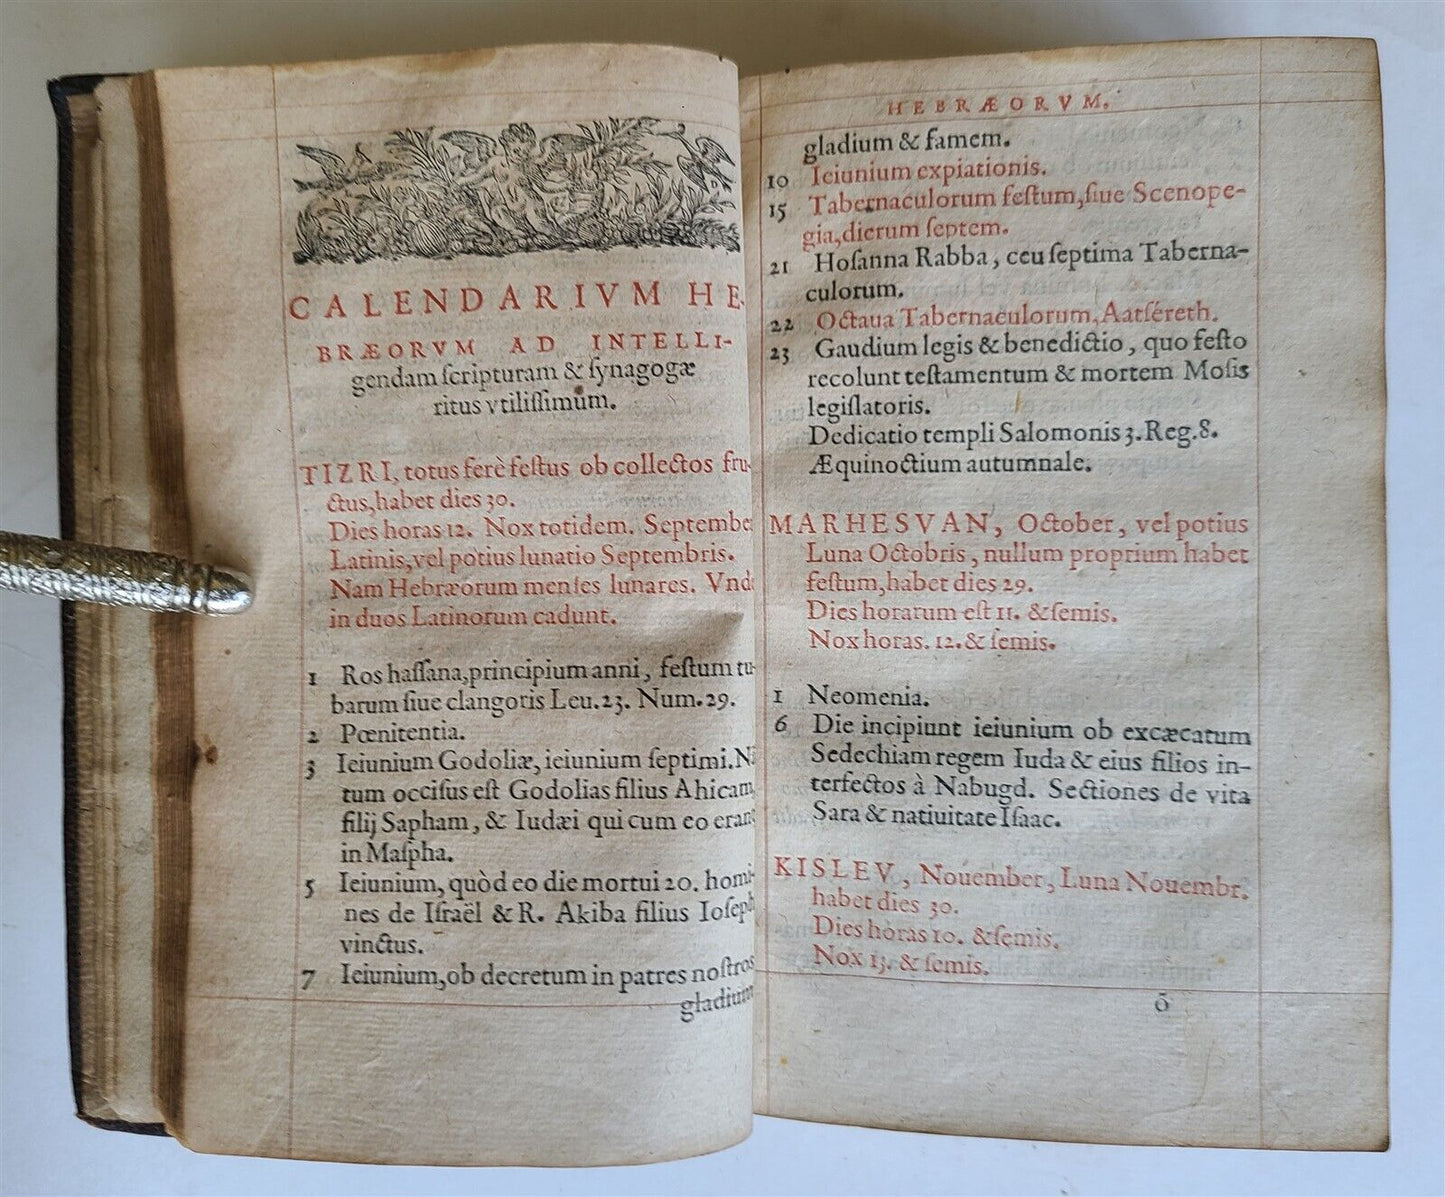 CALENDARIVM HE-
BRÆORVM AD INTELLI-
gendam ſcripturam & ſynagogæ
ritus vtiliſſimum.
TIZRI, totus ferè feſtus ob collectos fru-
ctus, habet dies 30.
Dies horas 12. Nox totidem. September
Latinis, vel potius lunatio Septembris.
Nam Hebræorum menſes lunares. Vnde
in duos Latinorum cadunt.
1 Ros haſſana, principium anni, feſtum tu-
barum ſiue clangoris Leu. 23. Num. 29.
2 Pœnitentia.
3 Ieiunium Godoliæ, ieiunium ſeptimi.
tum occiſus eſt Godolias filius Ahicam
filij Sapham, & Iudæi qui cum eo erant
in Maſpha.
5 Ieiunium, quòd eo die mortui 20. homi-
nes de Iſraël & R. Akiba filius Ioſeph
vinctus.
7 Ieiunium, ob decretum in patres noſtros
gladium
HEBRÆORVM.
gladium & famem.
10 Ieiunium expiationis.
15 Tabernaculorum feſtum, ſiue Scenope-
gia, dierum ſeptem.
21 Hoſanna Rabba, ceu ſeptima Taberna-
culorum.
22 Octaua Tabernaculorum, Aatſéreth.
23 Gaudium legis & benedictio, quo feſto
recolunt teſtamentum & mortem Moſis
legiſlatoris.
Dedicatio templi Salomonis 3. Reg. 8.
Æquinoctium autumnale.
MARHESVAN, October, vel potius
Luna Octobris, nullum proprium habet
feſtum, habet dies 29.
Dies horarum eſt 11. & ſemis.
Nox horas. 12. & ſemis.
1 Neomenia.
6 Die incipiunt ieiunium ob excæcatum
Sedechiam regem Iuda & eius filios in-
terfectos à Nabugd. Sectiones de vita
Sara & natiuitate Iſaac.
KISLEV, Nouember, Luna Nouembr.
habet dies 30.
Dies horas 10. & ſemis.
Nox 13. & ſemis.
õ